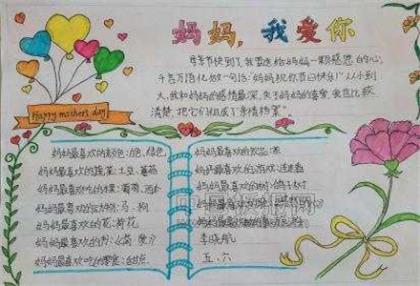 妈妈,我爱你
母亲节快到了,我要送给妈妈一颗感恩的心,
千言万语化做一句话:"妈妈祝你节日快乐!"从小到
大,我和妈妈的感情最深,关于妈妈的喜爱,我也比较
清楚,把它们组成了"亲情档案"
Happy mother's day
妈妈最喜欢的颜色:白色,绿色
妈妈最喜欢的蔬菜:土豆,番茄
妈妈最喜欢吃的水果:葡萄,西
妈妈最喜欢的动物:马,狗
妈妈最喜欢的花:荷花
妈妈最喜欢的
妈妈最喜欢吃的零食:甜点
妈妈最喜欢的饮品:茶
妈妈最喜欢的游戏:连连看
妈妈最喜欢的树:鸽子树
妈妈最喜欢
妈妈最喜欢
李晓航
五、六